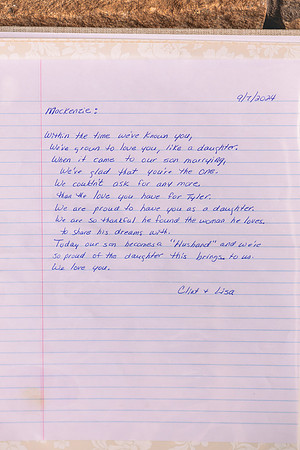 9/7/2024
Mackenzie:
Within the time we've known you,
We've grown to love you, like a daughter.
When it came to our son marrying,
We're glad that you're the one.
We couldn't ask for any more,
than the love you have for Tyler.
We are proud to have you as a daughter.
We are so thankful he found the woman he loves,
to share his dreams with.
Today our son becomes a "Husband" and we're
so proud of the daughter this brings to us.
We love you.
Clint + Lisa